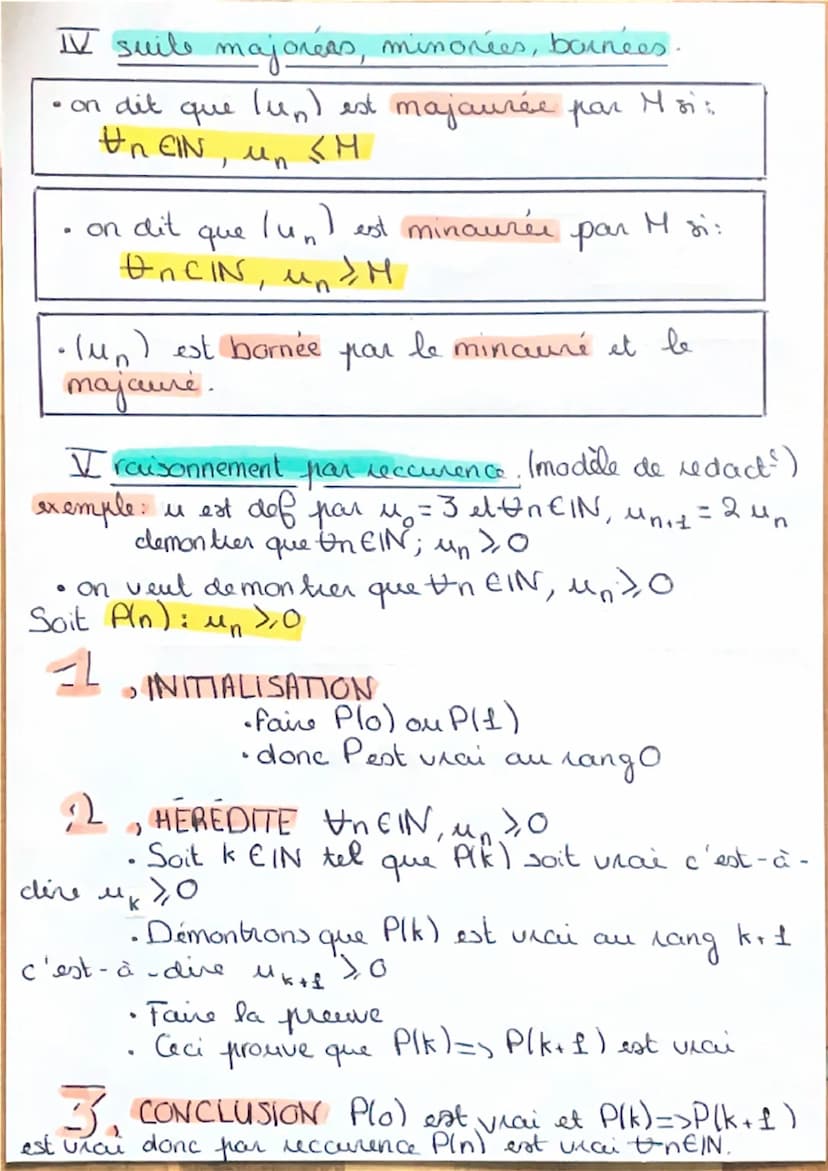 IV suite majorées, minorées, bornées.
• on dit que (un) est majaurée par M si :
∀n ∈ IN, un ≤ M
• on dit que (un) est minaurée par M si :
∀n ∈ IN, un ≥ M
• (un) est bornée par le minauré et le
majauré.
V raisonnement par reccurence. (modèle de redact°)
exemple : u est def par u0 = 3 et ∀n ∈ IN, un+1 = 2 un
demontrer que ∀n ∈ IN ; un ≥ 0
• on veut demontrer que ∀n ∈ IN, un ≥ 0
Soit P(n) : un ≥ 0
1, INITIALISATION
• faire P(0) ou P(1)
• donc P est vrai au rang 0
2, HÉRÉDITE ∀n ∈ IN, un ≥ 0
• Soit k ∈ IN tel que P(k) soit vrai c'est-à-
dire uk ≥ 0
• Démontrons que P(k) est vrai au rang k+1
c'est-à-dire uk+1 ≥ 0
• Faire la preuve
• Ceci prouve que P(k) => P(k+1) est vrai
3, CONCLUSION P(0) est vrai et P(k) => P(k+1)
est vrai donc par reccurence P(n) est vrai ∀n ∈ IN.